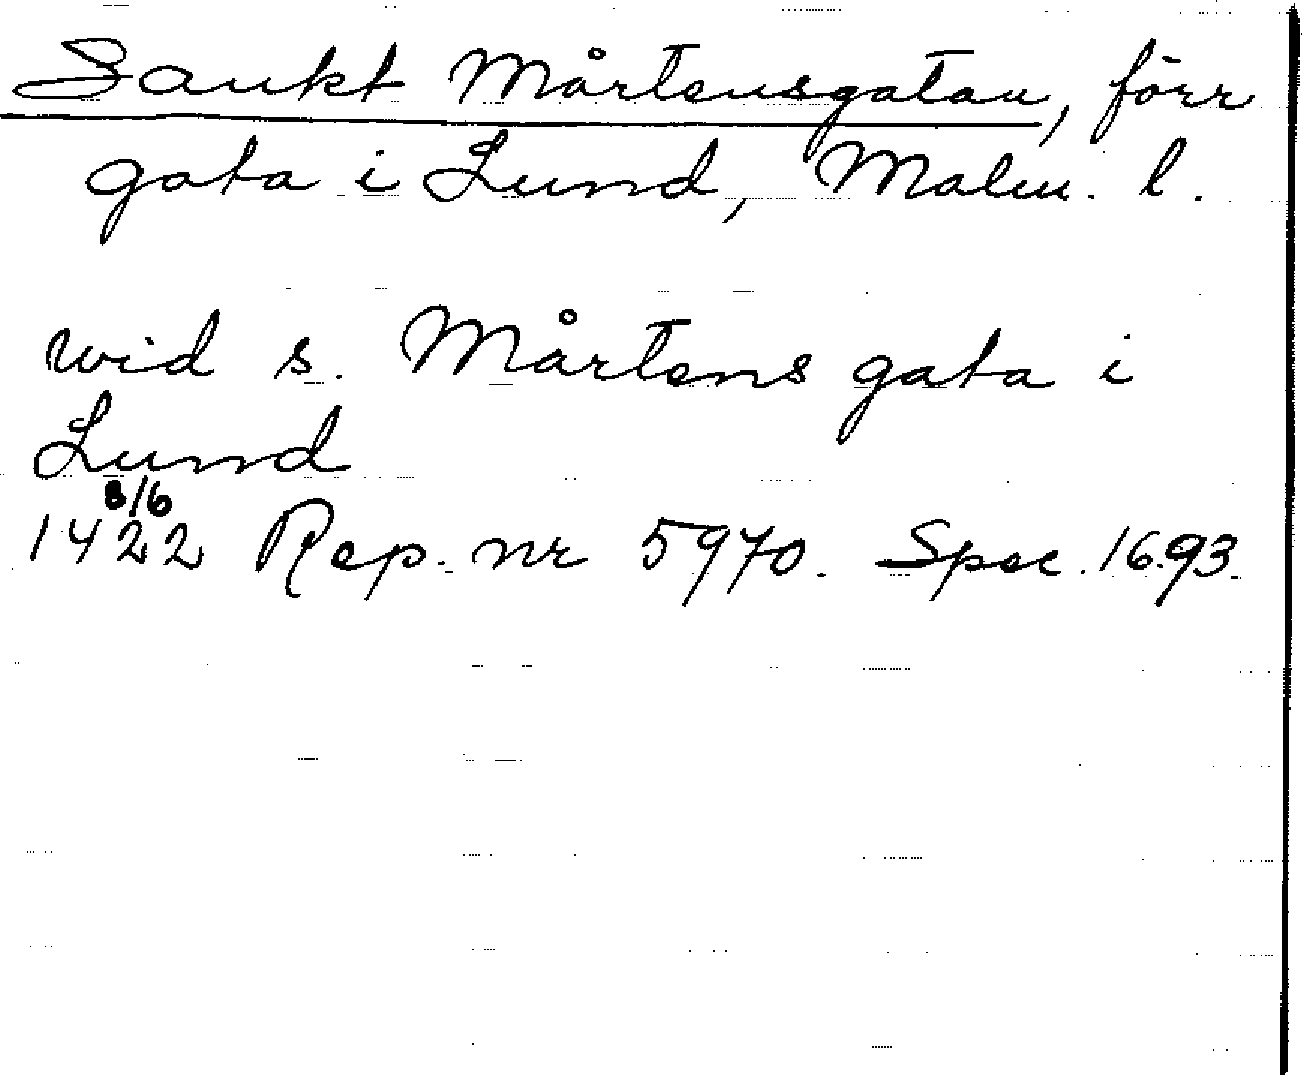 Sankt Mårtensgatan, förr
gata i Lund, Malm. l.
wid s. Mårtens gata i
Lund
8/6
1422 Rep. nr 5970. Spec. 16.93.